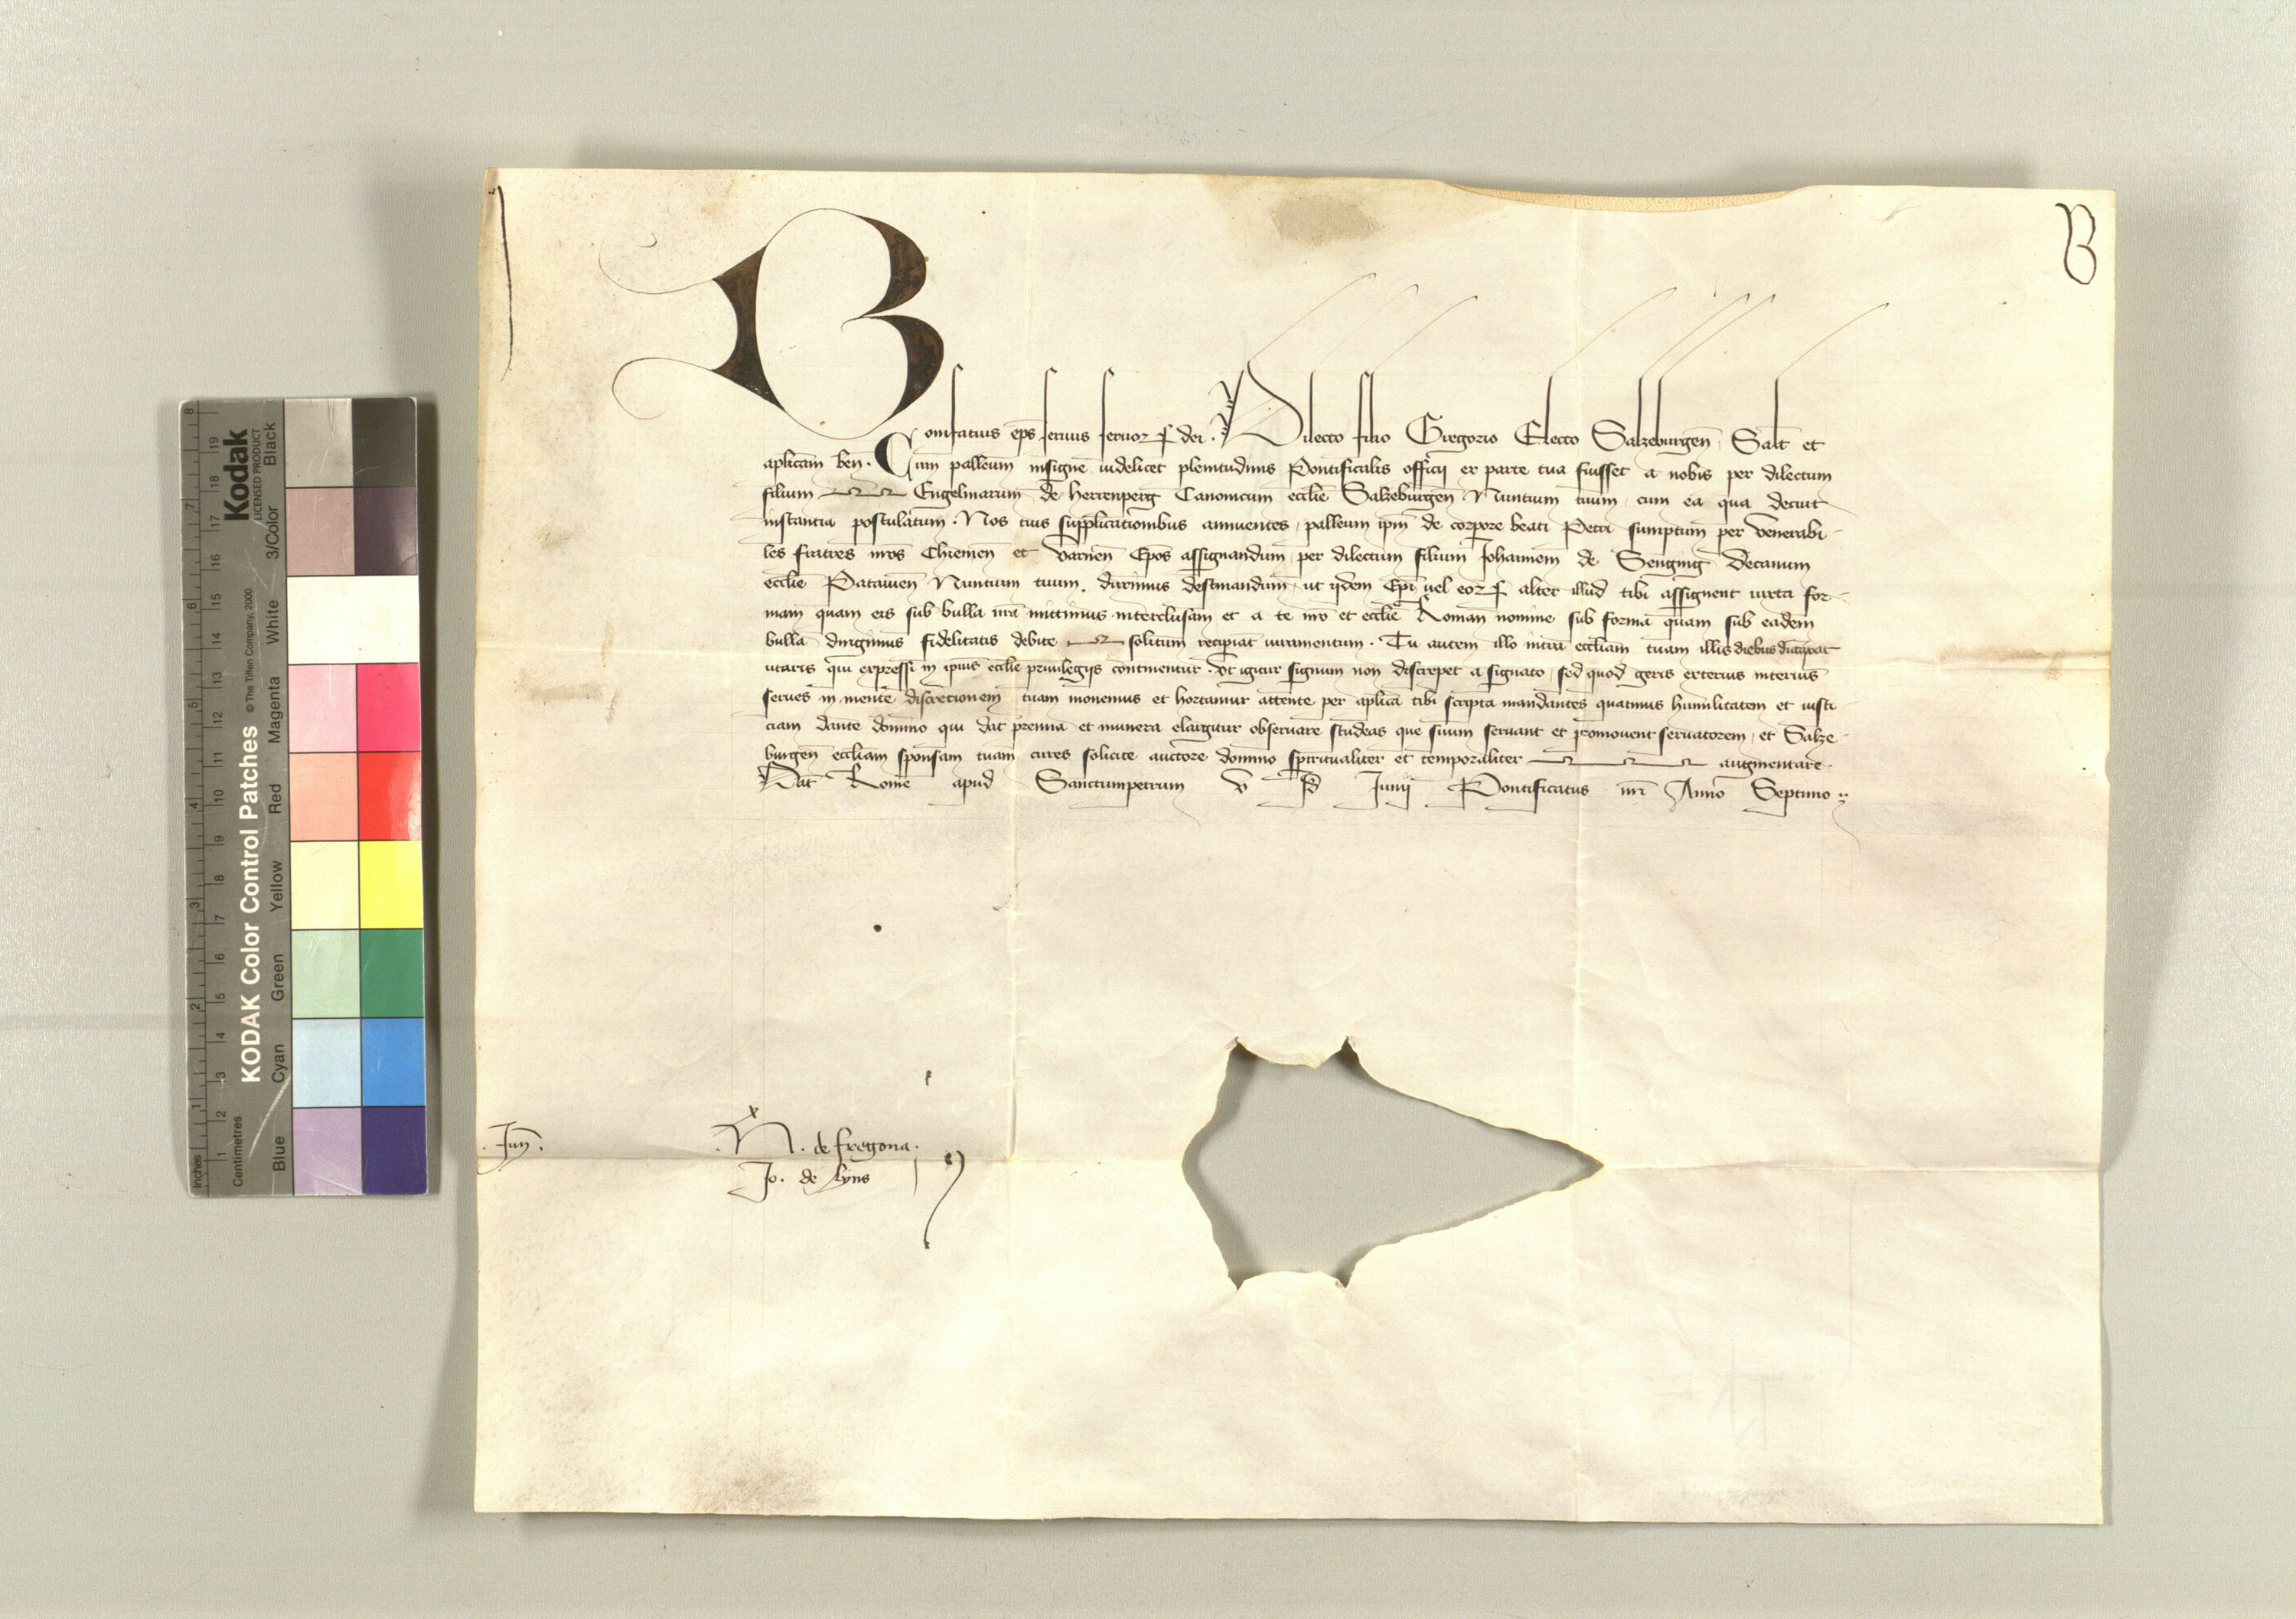 B
Bonifatius ep̄s seruus seruoꝝ dei. Dilecto filio Gregorio Electo Salzeburgeñ Salt̄ et
aplicam ben̄. Cum palleum insigne uidelicet plenitudinis Pontificalis officij ex parte tua fuisset a nobis per dilectum
filium Engelmarum de herrenperg Canonicum eccl̄ie Salzeburgeñ Nuntium tuum, cum ea qua decuit
instantia postulatum. Nos tuis supplicationibus annuentes, palleum ip̄m de corpore beati Petri sumptum per venerabi-
les fratres nr̄os Chiemeñ et Varneñ Ep̄os assignandum, per dilectum filium Johannem de Senging Decanum
eccl̄ie Patauieñ Nuntium tuum, duximus destinandum, ut ijdem Ep̄i uel eoꝝ alter illud tibi assignent iuxta for-
mam quam eis sub bulla nr̄a mittimus interclusam et a te nr̄o et eccl̄ie Romañ nomine sub forma quam sub eadem
bulla dirigimus fidelitatis debite solitum recipiat iuramentum. Tu autem illo intra eccl̄iam tuam illis diebus dumtaxat
utaris qui expressi in ipsius eccl̄ie priuilegijs continentur. Vt igitur signum non discrepet a signato, sed quod geris exterius interius
serues in mente discretionem tuam monemus et hortamur attente per aplica tibi scripta mandantes quatinus humilitatem et iusti-
ciam dante domino qui dat premia et munera elargitur obseruare studeas que suum seruant et promouent seruatorem, et Salze-
burgeñ eccl̄iam sponsam tuam cures solicite auctore domino spiritualiter et temporaliter augmentare.
Dat̄ Rome apud Sanctumpetrum v Id Junij Pontificatus nr̄i Anno Septimo
. Jun̄ .
N. de fregona.
Jo. de Lyns
KODAK Color Control Patches
Kodak
LICENSED PRODUCT
© The Tiffen Company, 2000
Blue Cyan Green Yellow Red Magenta White 3/Color Black
Inches 1 2 3 4 5 6 7 8
Centimetres 1 2 3 4 5 6 7 8 9 10 11 12 13 14 15 16 17 18 19